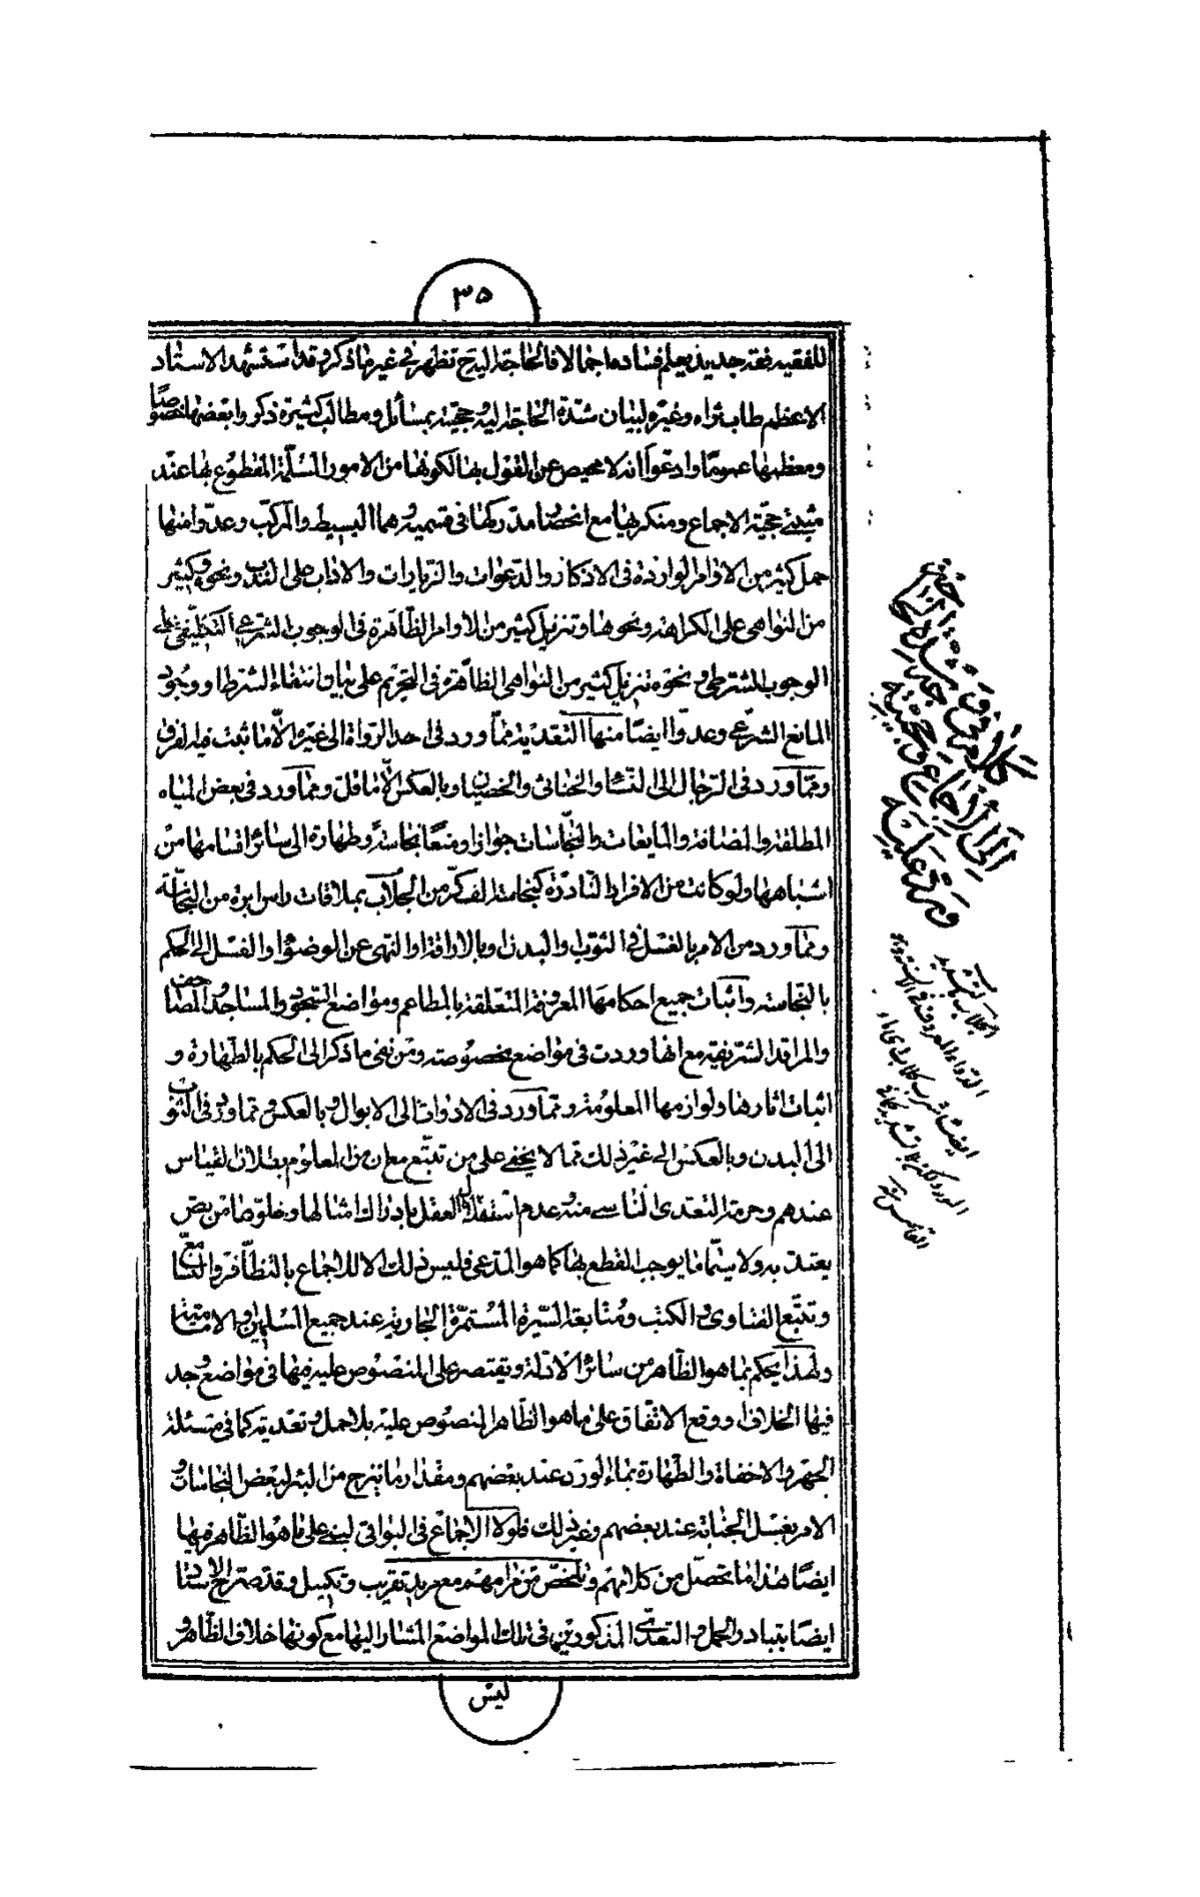 ٣٥
للفقيه فقه جديد يعلم فساده اجمالا فالحاجة اليه ح تظهر في غير ما ذكر وقد استشهد الاستاد
الاعظم طاب ثراه وغيره لبيان شدة الحاجة اليه وحجيته بمسائل ومطالب كثيرة ذكروا بعضها خصوصا
ومعظمها عموما وادعوا انه لا محيص عن القول بها لكونها من الامور المسلمة المقطوع بها عند
مثبتي حجية الاجماع ومنكريها مع انحصار مدركها في قسميه وهما البسيط والمركب وعدوا منها
حمل كثير من الاوامر الواردة في الاذكار والدعوات والزيارات والاداب على الندب ونحوه وكثير
من النواهي على الكراهة ونحوها وتنزيل كثير من الاوامر الظاهرة في الوجوب الشرعي التكليفي على
الوجوب الشرطي ونحوه وتنزيل كثير من النواهي الظاهرة في التحريم على بيان انتفاء الشرط او وجود
المانع الشرعي وعدوا ايضا منها التعدية مما ورد في احد الرواة الى غيره الا ما ثبت فيه الفرق
ومما ورد في الرجال الى النساء والخناثى والخصيان وبالعكس الا ما قل ومما ورد في بعض المياه
المطلقة والمضافة والمايعات والنجاسات جوازا ومنعا نجاسة وطهارة الى سائر اقسامها من
اشباهها ولو كانت من الافراد النادرة كنجاسة الف كر من الجلاب بملاقات راس ابرة من النجاسة
ومما ورد من الامر بالغسل في الثوب والبدن او بالاراقة او النهي عن الوضوء او الغسل الى الحكم
بالنجاسة واثبات جميع احكامها المعروفة المتعلقة بالمطاعم ومواضع السجود والمساجد والمصاحف
والمراقد الشريفة مع انها وردت في مواضع مخصوصة ومن نفي ما ذكر الى الحكم بالطهارة و
اثبات اثارها ولوازمها المعلومة ومما ورد في الارواث الى الابوال وبالعكس ومما ورد في الثوب
الى البدن وبالعكس الى غير ذلك مما لا يخفى على من تتبع مع ان من المعلوم بطلان القياس
عندهم وحرمة التعدي الناشي منه وعدم استقلال العقل بادراك امثالها وخلوها من نص
يعتد به ولا سيما ما يوجب القطع بها كما هو المدعى فليس ذلك الا للاجماع بالتظافر والتسامع
وتتبع الفتاوى والكتب ومتابعة السيرة المستمرة الجارية عند جميع المسلمين او الامامية
ولهذا يحكم بما هو الظاهر من سائر الادلة ويقتصر على المنصوص عليه فيها في مواضع وجد
فيها الخلاف او وقع الاتفاق على ما هو الظاهر المنصوص عليه بلا حمل وتعدية كما في مسئلة
الجهر والاخفاة والطهارة بماء الورد عند بعضهم ومقدار ما ينزح من البئر لبعض النجاسات و
الامر بغسل الجنابة عند بعضهم وغير ذلك فلولا الاجماع في البواقي لبني على ما هو الظاهر فيها
ايضا هذا ما تحصل من كلامهم وتلخص من مرامهم مع مزيد تقريب وتكميل وقد صرح الاستاد
ايضا بتبادر الحمل والتعدي المذكورين في تلك المواضع المشار اليها مع كونها خلاف الظاهر و
ليس
كلام من شدة الحاجة
الى الاجماع وحجيته